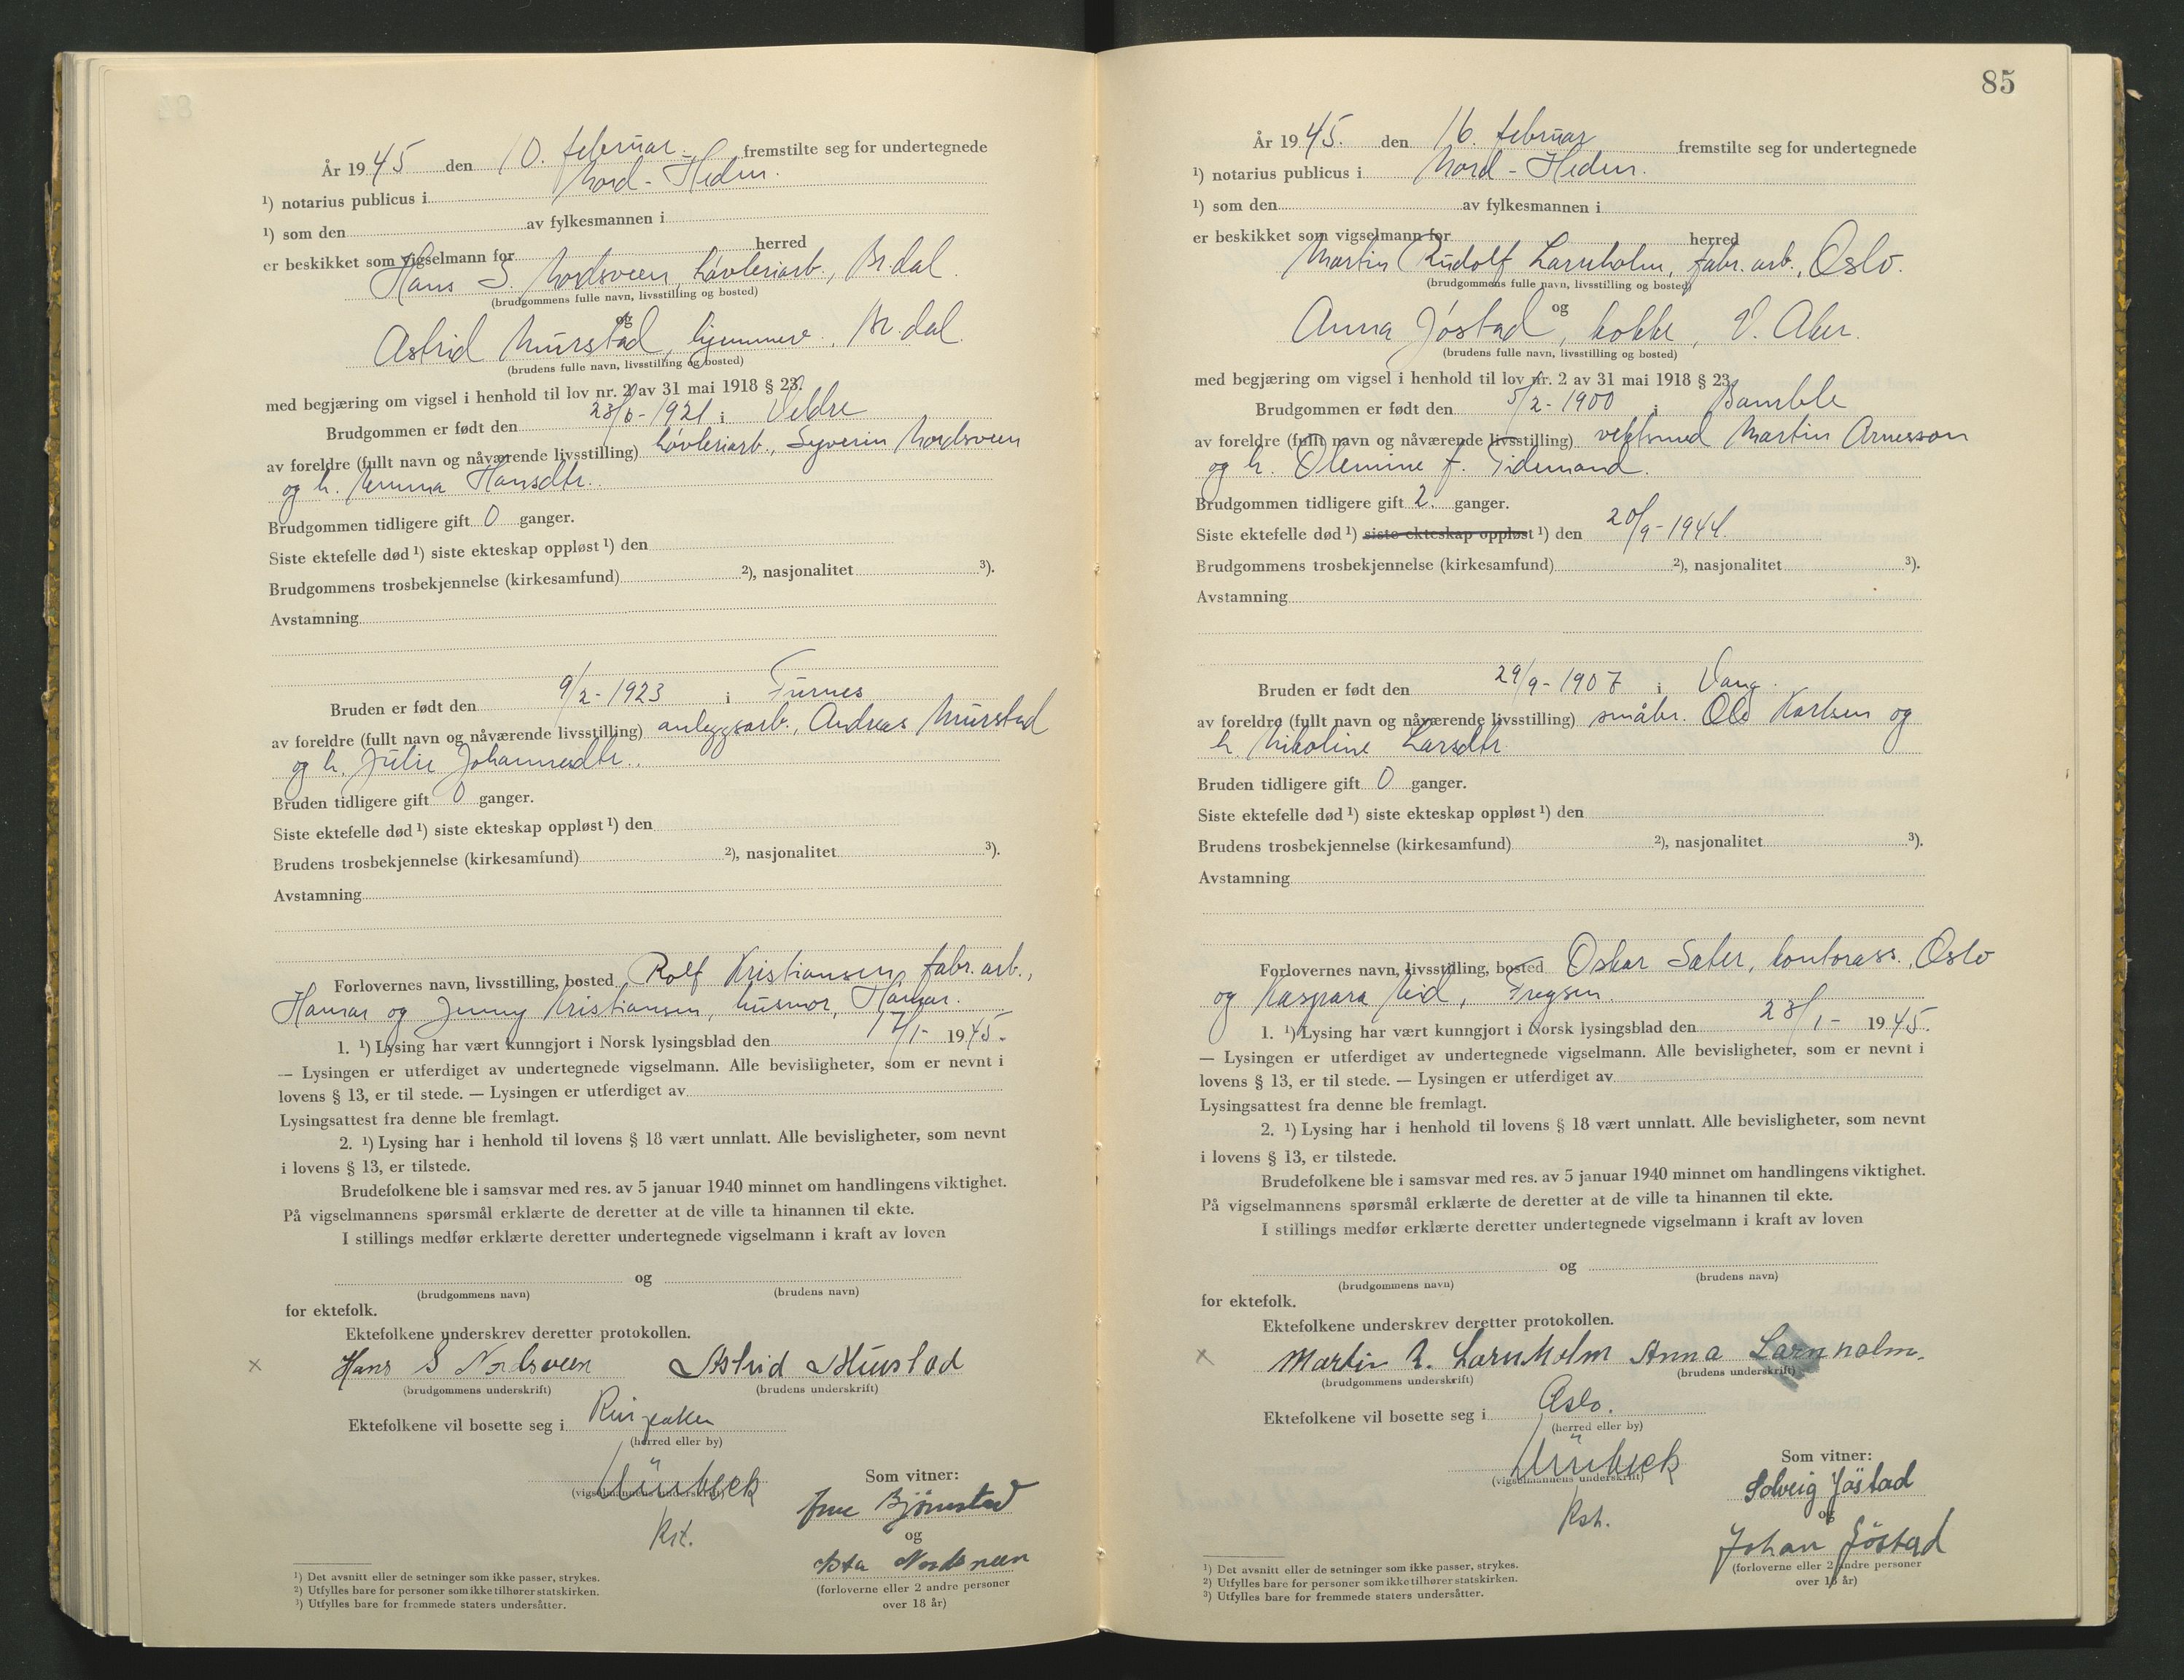 År 1945 den 10. februar. fremstilte seg for undertegnede
¹) notarius publicus i Nord-Hedm.
¹) som den av fylkesmannen i
er beskikket som vigselmann for herred
Hans S. Nordsveen, høvleriarb., Br.dal.
(brudgommens fulle navn, livsstilling og bosted)
og
Astrid Murstad, hjemmev., Br.dal.
(brudens fulle navn, livsstilling og bosted)
med begjæring om vigsel i henhold til lov nr. 2 av 31 mai 1918 § 23.
Brudgommen er født den 23/6-1921 i Veldre
av foreldre (fullt navn og nåværende livsstilling) høvleriarb., Syverin Nordsveen
og h. Emma Hansdtr.
Brudgommen tidligere gift 0 ganger.
Siste ektefelle død ¹) siste ekteskap oppløst ¹) den
Brudgommens trosbekjennelse (kirkesamfund) ²), nasjonalitet ³).
Avstamning
Bruden er født den 9/2-1923 i Furnes
av foreldre (fullt navn og nåværende livsstilling) anleggsarb., Andreas Murstad
og h. Julie Johannesdtr.
Bruden tidligere gift 0 ganger.
Siste ektefelle død ¹) siste ekteskap oppløst ¹) den
Brudens trosbekjennelse (kirkesamfund) ²), nasjonalitet ³).
Avstamning
Forlovernes navn, livsstilling, bosted Rolf Kristiansen, fabr.arb.,
Hamar og Jenny Kristiansen, husmor, Hamar.
1. ¹) Lysing har vært kunngjort i Norsk lysingsblad den 17/1- 1945.
— Lysingen er utferdiget av undertegnede vigselmann. Alle bevisligheter, som er nevnt i
lovens § 13, er til stede. — Lysingen er utferdiget av
Lysingsattest fra denne ble fremlagt.
2. ¹) Lysing har i henhold til lovens § 18 vært unnlatt. Alle bevisligheter, som nevnt
i lovens § 13, er tilstede.
Brudefolkene ble i samsvar med res. av 5 januar 1940 minnet om handlingens viktighet.
På vigselmannens spørsmål erklærte de deretter at de ville ta hinannen til ekte.
I stillings medfør erklærte deretter undertegnede vigselmann i kraft av loven
og
(brudgommens navn) (brudens navn)
for ektefolk.
Ektefolkene underskrev deretter protokollen.
x Hans S Nordsveen Astrid Murstad
(brudgommens underskrift) (brudens underskrift)
Ektefolkene vil bosette seg i Ringsaker
(herred eller by)
(vigselmannens underskrift)
Som vitner:
Bjørnstad
og
Nordsveen
(forloverne eller 2 andre personer
over 18 år)
¹) Det avsnitt eller de setninger som ikke passer, strykes.
²) Utfylles bare for personer som ikke tilhører statskirken.
³) Utfylles bare for fremmede staters undersåtter.
85
År 1945. den 16. februar fremstilte seg for undertegnede
¹) notarius publicus i Nord-Hedm.
¹) som den av fylkesmannen i
er beskikket som vigselmann for herred
Martin Rudolf Larnholm, fabr.arb., Oslo.
(brudgommens fulle navn, livsstilling og bosted)
og
Anna Jøstad, kokke, V. Aker.
(brudens fulle navn, livsstilling og bosted)
med begjæring om vigsel i henhold til lov nr. 2 av 31 mai 1918 § 23.
Brudgommen er født den 5/2-1900 i Bamble
av foreldre (fullt navn og nåværende livsstilling) Martin Arnesson
og h. Olemine f. Tidemand.
Brudgommen tidligere gift 2. ganger.
Siste ektefelle død ¹) siste ekteskap oppløst ¹) den 20/9-1944.
Brudgommens trosbekjennelse (kirkesamfund) ²), nasjonalitet ³).
Avstamning
Bruden er født den 29/9-1907 i Vang.
av foreldre (fullt navn og nåværende livsstilling) småbr. Ole Karlsen og
h. Nikoline Larsdtr.
Bruden tidligere gift 0 ganger.
Siste ektefelle død ¹) siste ekteskap oppløst ¹) den
Brudens trosbekjennelse (kirkesamfund) ²), nasjonalitet ³).
Avstamning
Forlovernes navn, livsstilling, bosted Oskar Sæter, kontorass., Oslo
og Kaspara Eid,
1. ¹) Lysing har vært kunngjort i Norsk lysingsblad den 23/1- 1945.
— Lysingen er utferdiget av undertegnede vigselmann. Alle bevisligheter, som er nevnt i
lovens § 13, er til stede. — Lysingen er utferdiget av
Lysingsattest fra denne ble fremlagt.
2. ¹) Lysing har i henhold til lovens § 18 vært unnlatt. Alle bevisligheter, som nevnt
i lovens § 13, er tilstede.
Brudefolkene ble i samsvar med res. av 5 januar 1940 minnet om handlingens viktighet.
På vigselmannens spørsmål erklærte de deretter at de ville ta hinannen til ekte.
I stillings medfør erklærte deretter undertegnede vigselmann i kraft av loven
og
(brudgommens navn) (brudens navn)
for ektefolk.
Ektefolkene underskrev deretter protokollen.
x Martin R. Larnholm Anna Larnholm.
(brudgommens underskrift) (brudens underskrift)
Ektefolkene vil bosette seg i Oslo.
(herred eller by)
(vigselmannens underskrift)
Som vitner:
Solveig Jøstad
og
Johan Jøstad
(forloverne eller 2 andre personer
over 18 år)
¹) Det avsnitt eller de setninger som ikke passer, strykes.
²) Utfylles bare for personer som ikke tilhører statskirken.
³) Utfylles bare for fremmede staters undersåtter.